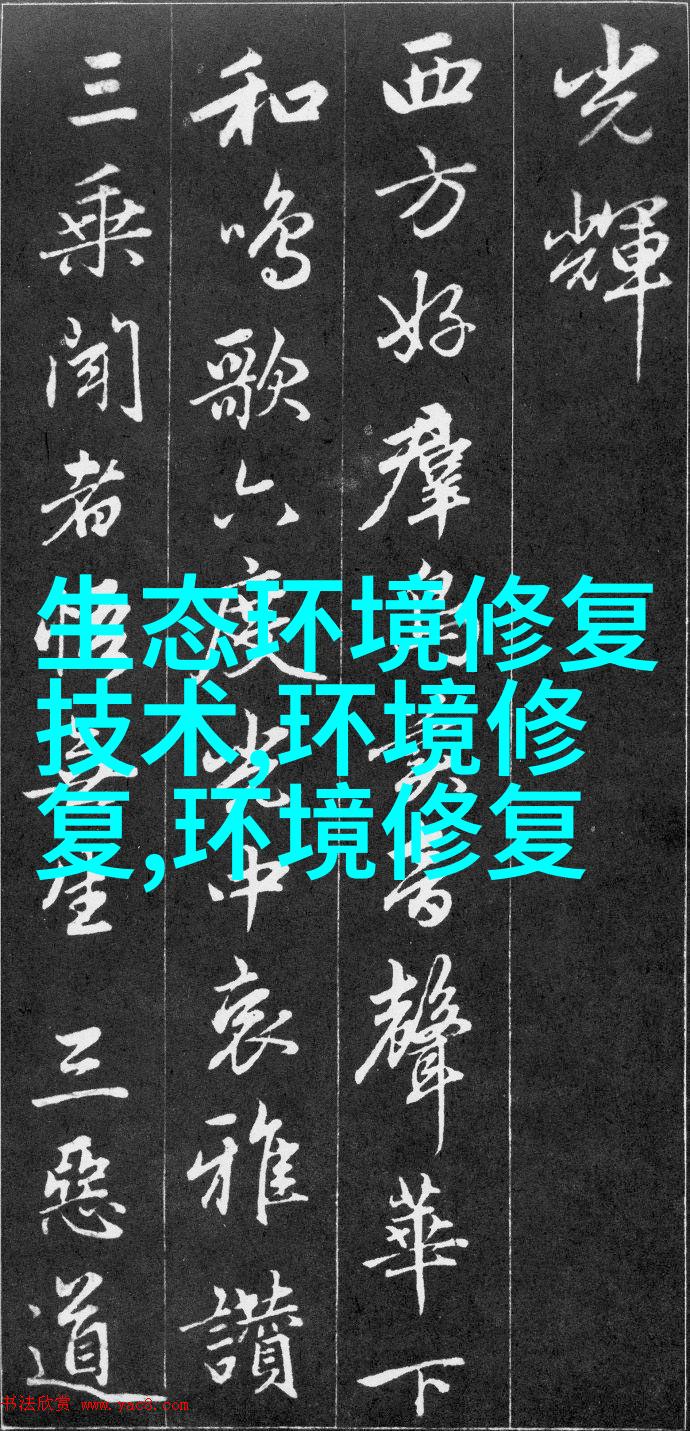 光輝
西方好羣鳥音聲華下
和鳴歌六度光中哀雅讚
三乘聞者悟生三惡道
生态环境修复
技术,环境修
复,环境修复
书法欣赏 www.yac8.com